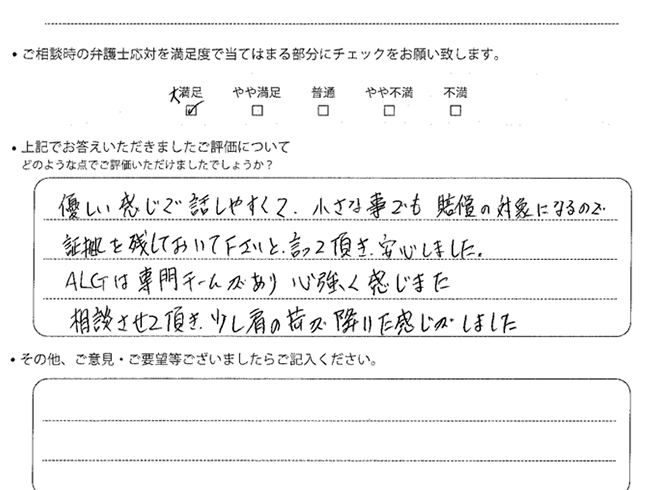 • ご相談時の弁護士応対を満足度で当てはまる部分にチェックをお願い致します。
大満足 やや満足 普通 やや不満 不満
☑ □ □ □ □
• 上記でお答えいただきましたご評価について
どのような点でご評価いただけましたでしょうか？
優しい感じで話しやすくて、小さな事でも賠償の対象になるので
証拠を残しておいて下さいと言って頂き、安心しました。
ALGは専門チームがあり心強く感じまた
相談させて頂き、少し肩の荷が降りた感じがしました
• その他、ご意見・ご要望等ございましたらご記入ください。